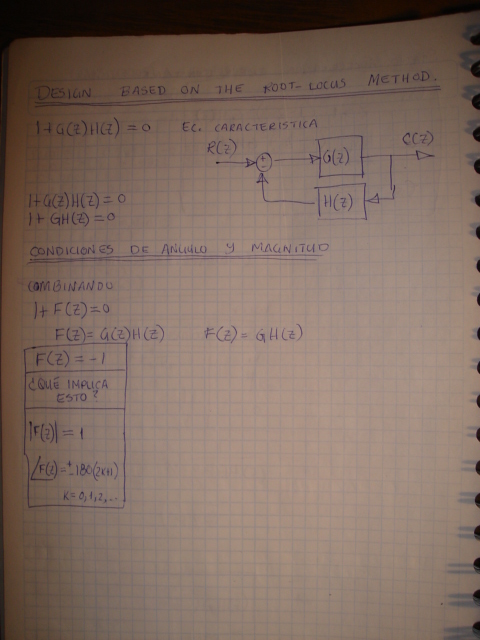 DESIGN BASED ON THE ROOT-LOCUS METHOD.
1+G(Z)H(Z) = 0 EC. CARACTERISTICA
R(Z) ± G(Z) C(Z)
H(Z)
1+G(Z)H(Z) = 0
1+ GH(Z) = 0
CONDICIONES DE ANGULO Y MAGNITUD
COMBINANDO
1+ F(Z) = 0
F(Z) = G(Z)H(Z) F(Z) = GH(Z)
F(Z) = -1
¿QUÉ IMPLICA
ESTO?
|F(Z)| = 1
∠F(Z) = ±180(2K+1)
K=0,1,2,...